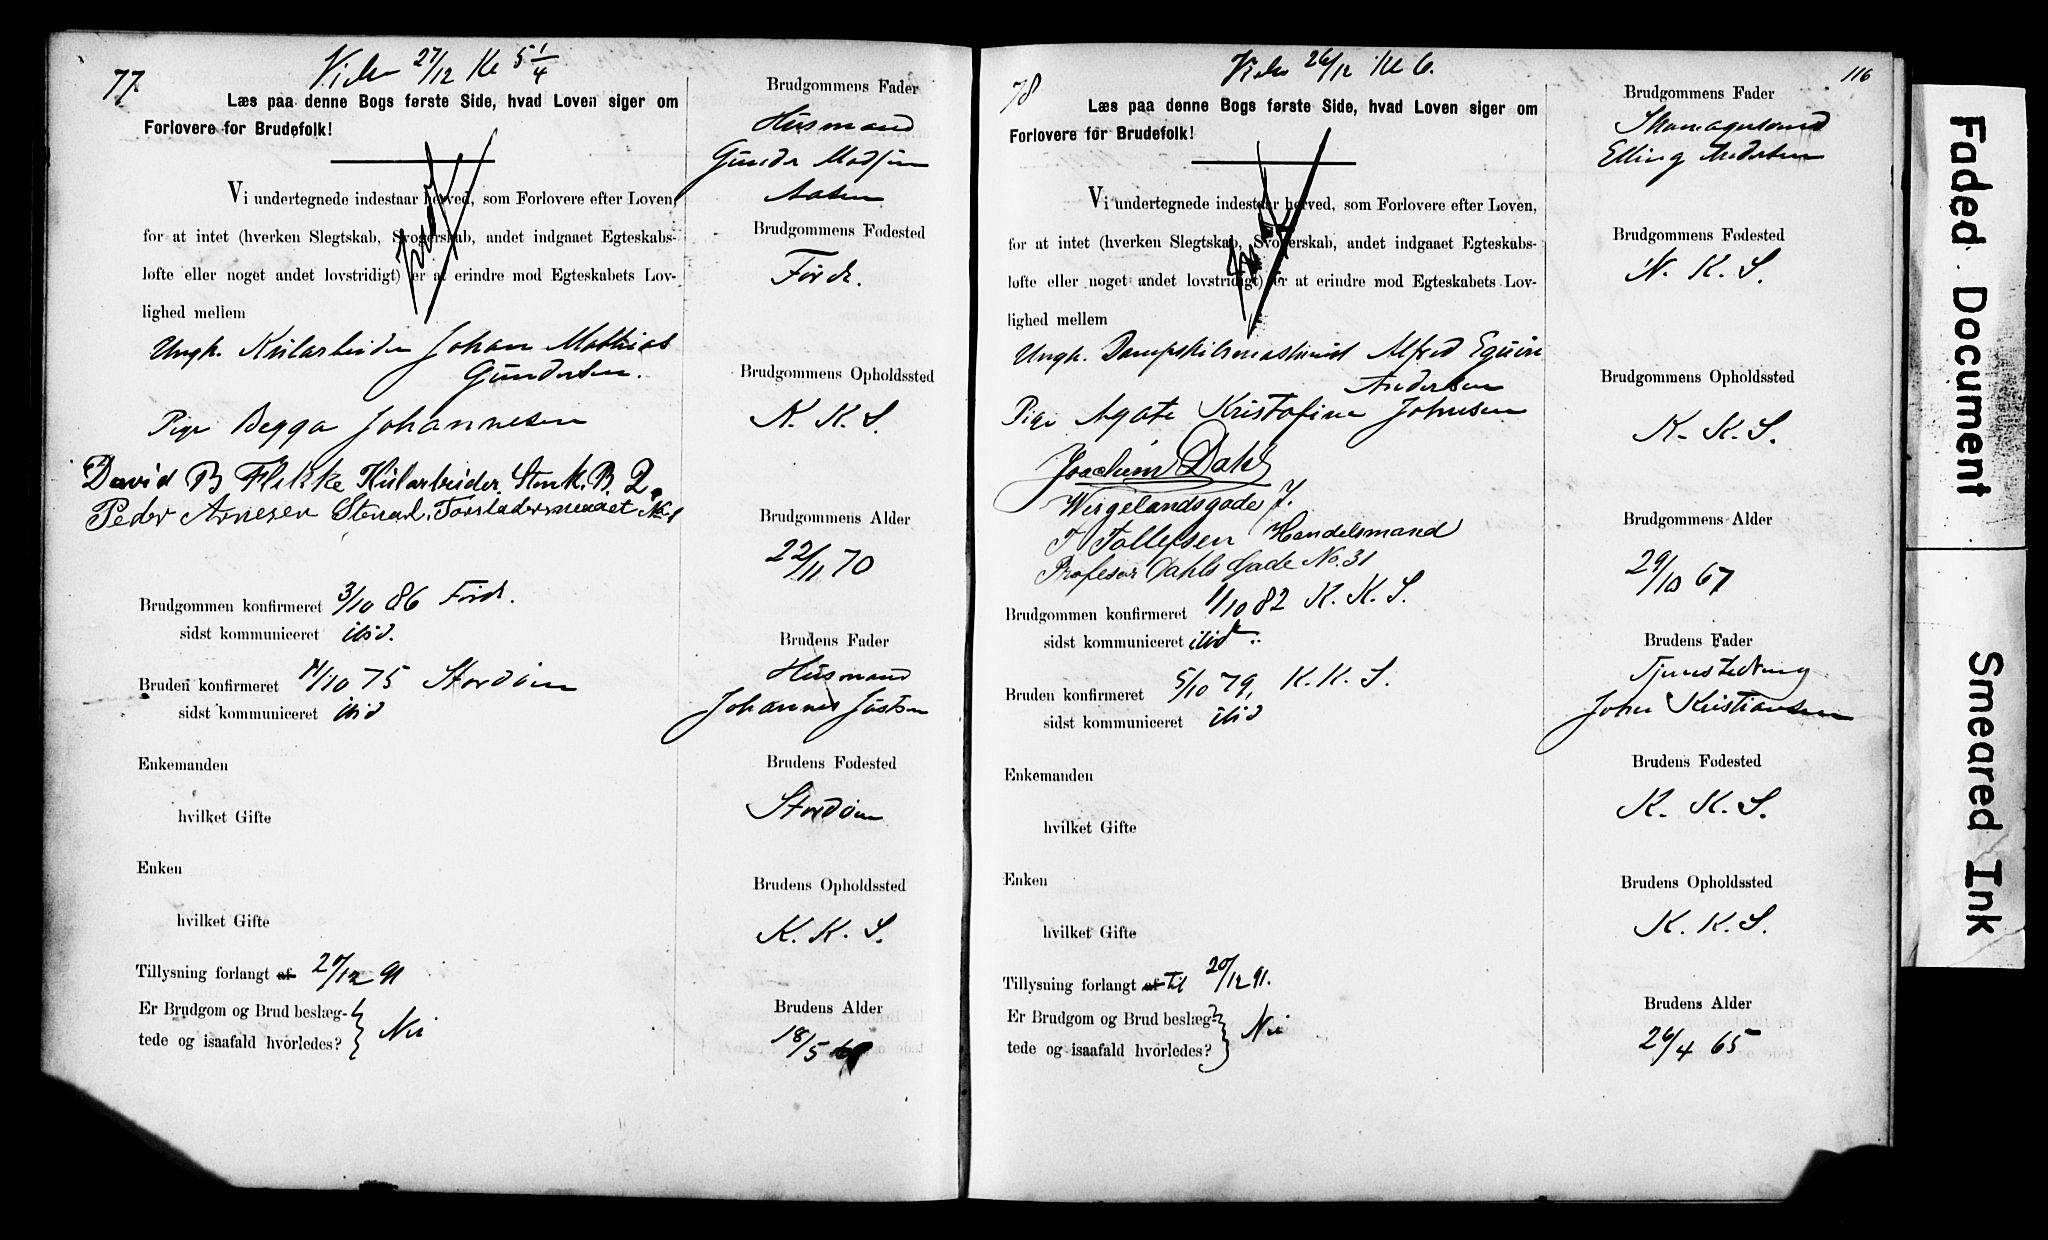 77.
Vies 27/12 Kl 5 1/4
Læs paa denne Bogs første Side, hvad Loven siger om
Forlovere for Brudefolk!
Vi undertegnede indestaar herved, som Forlovere efter Loven,
for at intet (hverken Slegtskab, Svogerskab, andet indgaaet Egteskabs-
løfte eller noget andet lovstridigt) er at erindre mod Egteskabets Lov-
lighed mellem
Ungk. Johan Mathias
Gundersen.
Pige Begga Johannesen
David B Flekke Stenk. B. 2.
Peder Arnesen
Brudgommen konfirmeret 3/10 86 Förde.
sidst kommuniceret ibid.
Bruden konfirmeret 11/10 75 Stordöen
sidst kommuniceret ibid
Enkemanden
hvilket Gifte
Enken
hvilket Gifte
Tillysning forlangt af 20/12 91
Er Brudgom og Brud beslæg-
tede og isaafald hvorledes? Nei
Brudgommens Fader
Husmand
Gunder Madsen
Aasen
Brudgommens Fødested
Förde.
Brudgommens Opholdssted
K. K. S.
Brudgommens Alder
22/11 70
Brudens Fader
Husmand
Johannes Jostsen
Brudens Fødested
Stordöen
Brudens Opholdssted
K. K. S.
Brudens Alder
18/5
116
78
Vies 26/12 Kl 6.
Læs paa denne Bogs første Side, hvad Loven siger om
Forlovere for Brudefolk!
Vi undertegnede indestaar herved, som Forlovere efter Loven,
for at intet (hverken Slegtskab, Svogerskab, andet indgaaet Egteskabs-
løfte eller noget andet lovstridigt) er at erindre mod Egteskabets Lov-
lighed mellem
Ungk. Dampskibsmaskinist Alfred
Andersen
Pige Agate Kristofine Johnsen
Joachim Dahl
Wergelandsgade 7.
T Tollefsen Handelsmand
Profesor Dahls Gade No. 31
Brudgommen konfirmeret 1/10 82 K. K. S.
sidst kommuniceret ibid
Bruden konfirmeret 5/10 79, K. K. S.
sidst kommuniceret ibid
Enkemanden
hvilket Gifte
Enken
hvilket Gifte
Tillysning forlangt af til 20/12 91.
Er Brudgom og Brud beslæg-
tede og isaafald hvorledes? Nei
Brudgommens Fader
Skomagersvend
Elling Andersen
Brudgommens Fødested
N. K. S.
Brudgommens Opholdssted
K. K. S.
Brudgommens Alder
29/10 67
Brudens Fader
John Kristiansen
Brudens Fødested
K. K. S.
Brudens Opholdssted
K. K. S.
Brudens Alder
26/4 65
Faded Document
Smeared Ink